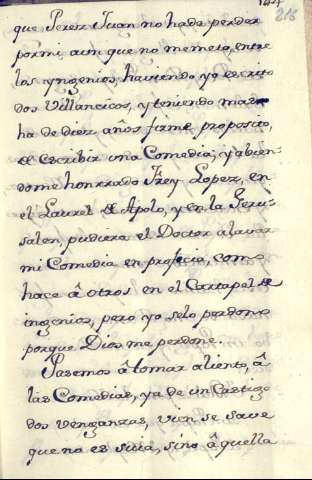 216
que Perez Juan no hade perder
pormi, aun que no memeto, entre
los yngenios, haviendo yo escrito
dos Villancicos, y teniendo mas
ha de diez años firme proposito,
de escribir una Comedia, y abien-
dome honrrado Frey Lopez, en
el Laurel de Apolo, y en la Jeru-
salen, pudiera el Doctor alavar
mi Comedia en profecia, como
hace â otros en el Cartapel de
ingenios, pero yo selo perdono
porque Dios me perdone.
Pasemos â tomar aliento, â
las Comedias, ya de un Castigo
dos venganzas, vien se save
que no es suia, sino â quella